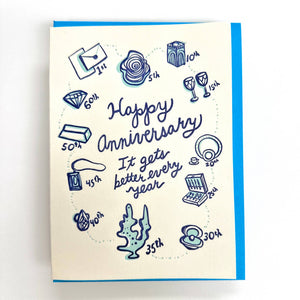 1st
5th
10th
15th
20th
25th
30th
35th
40th
45th
50th
60th
Happy
Anniversary
It gets
better every
year